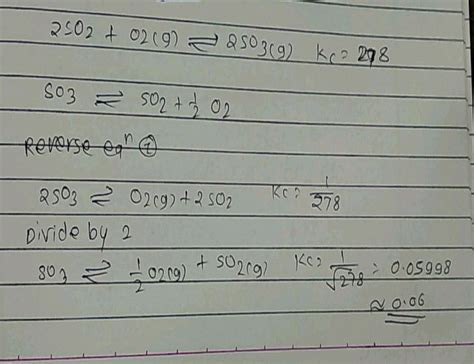 2SO2 + O2(g) ⇌ 2SO3(g) Kc = 278
SO3 ⇌ SO2 + 1/2 O2
Reverse eqn ①
2SO3 ⇌ O2(g) + 2SO2 Kc = 1/278
Divide by 2
SO3 ⇌ 1/2 O2(g) + SO2(g) Kc = 1/√278 = 0.05998
≈ 0.06